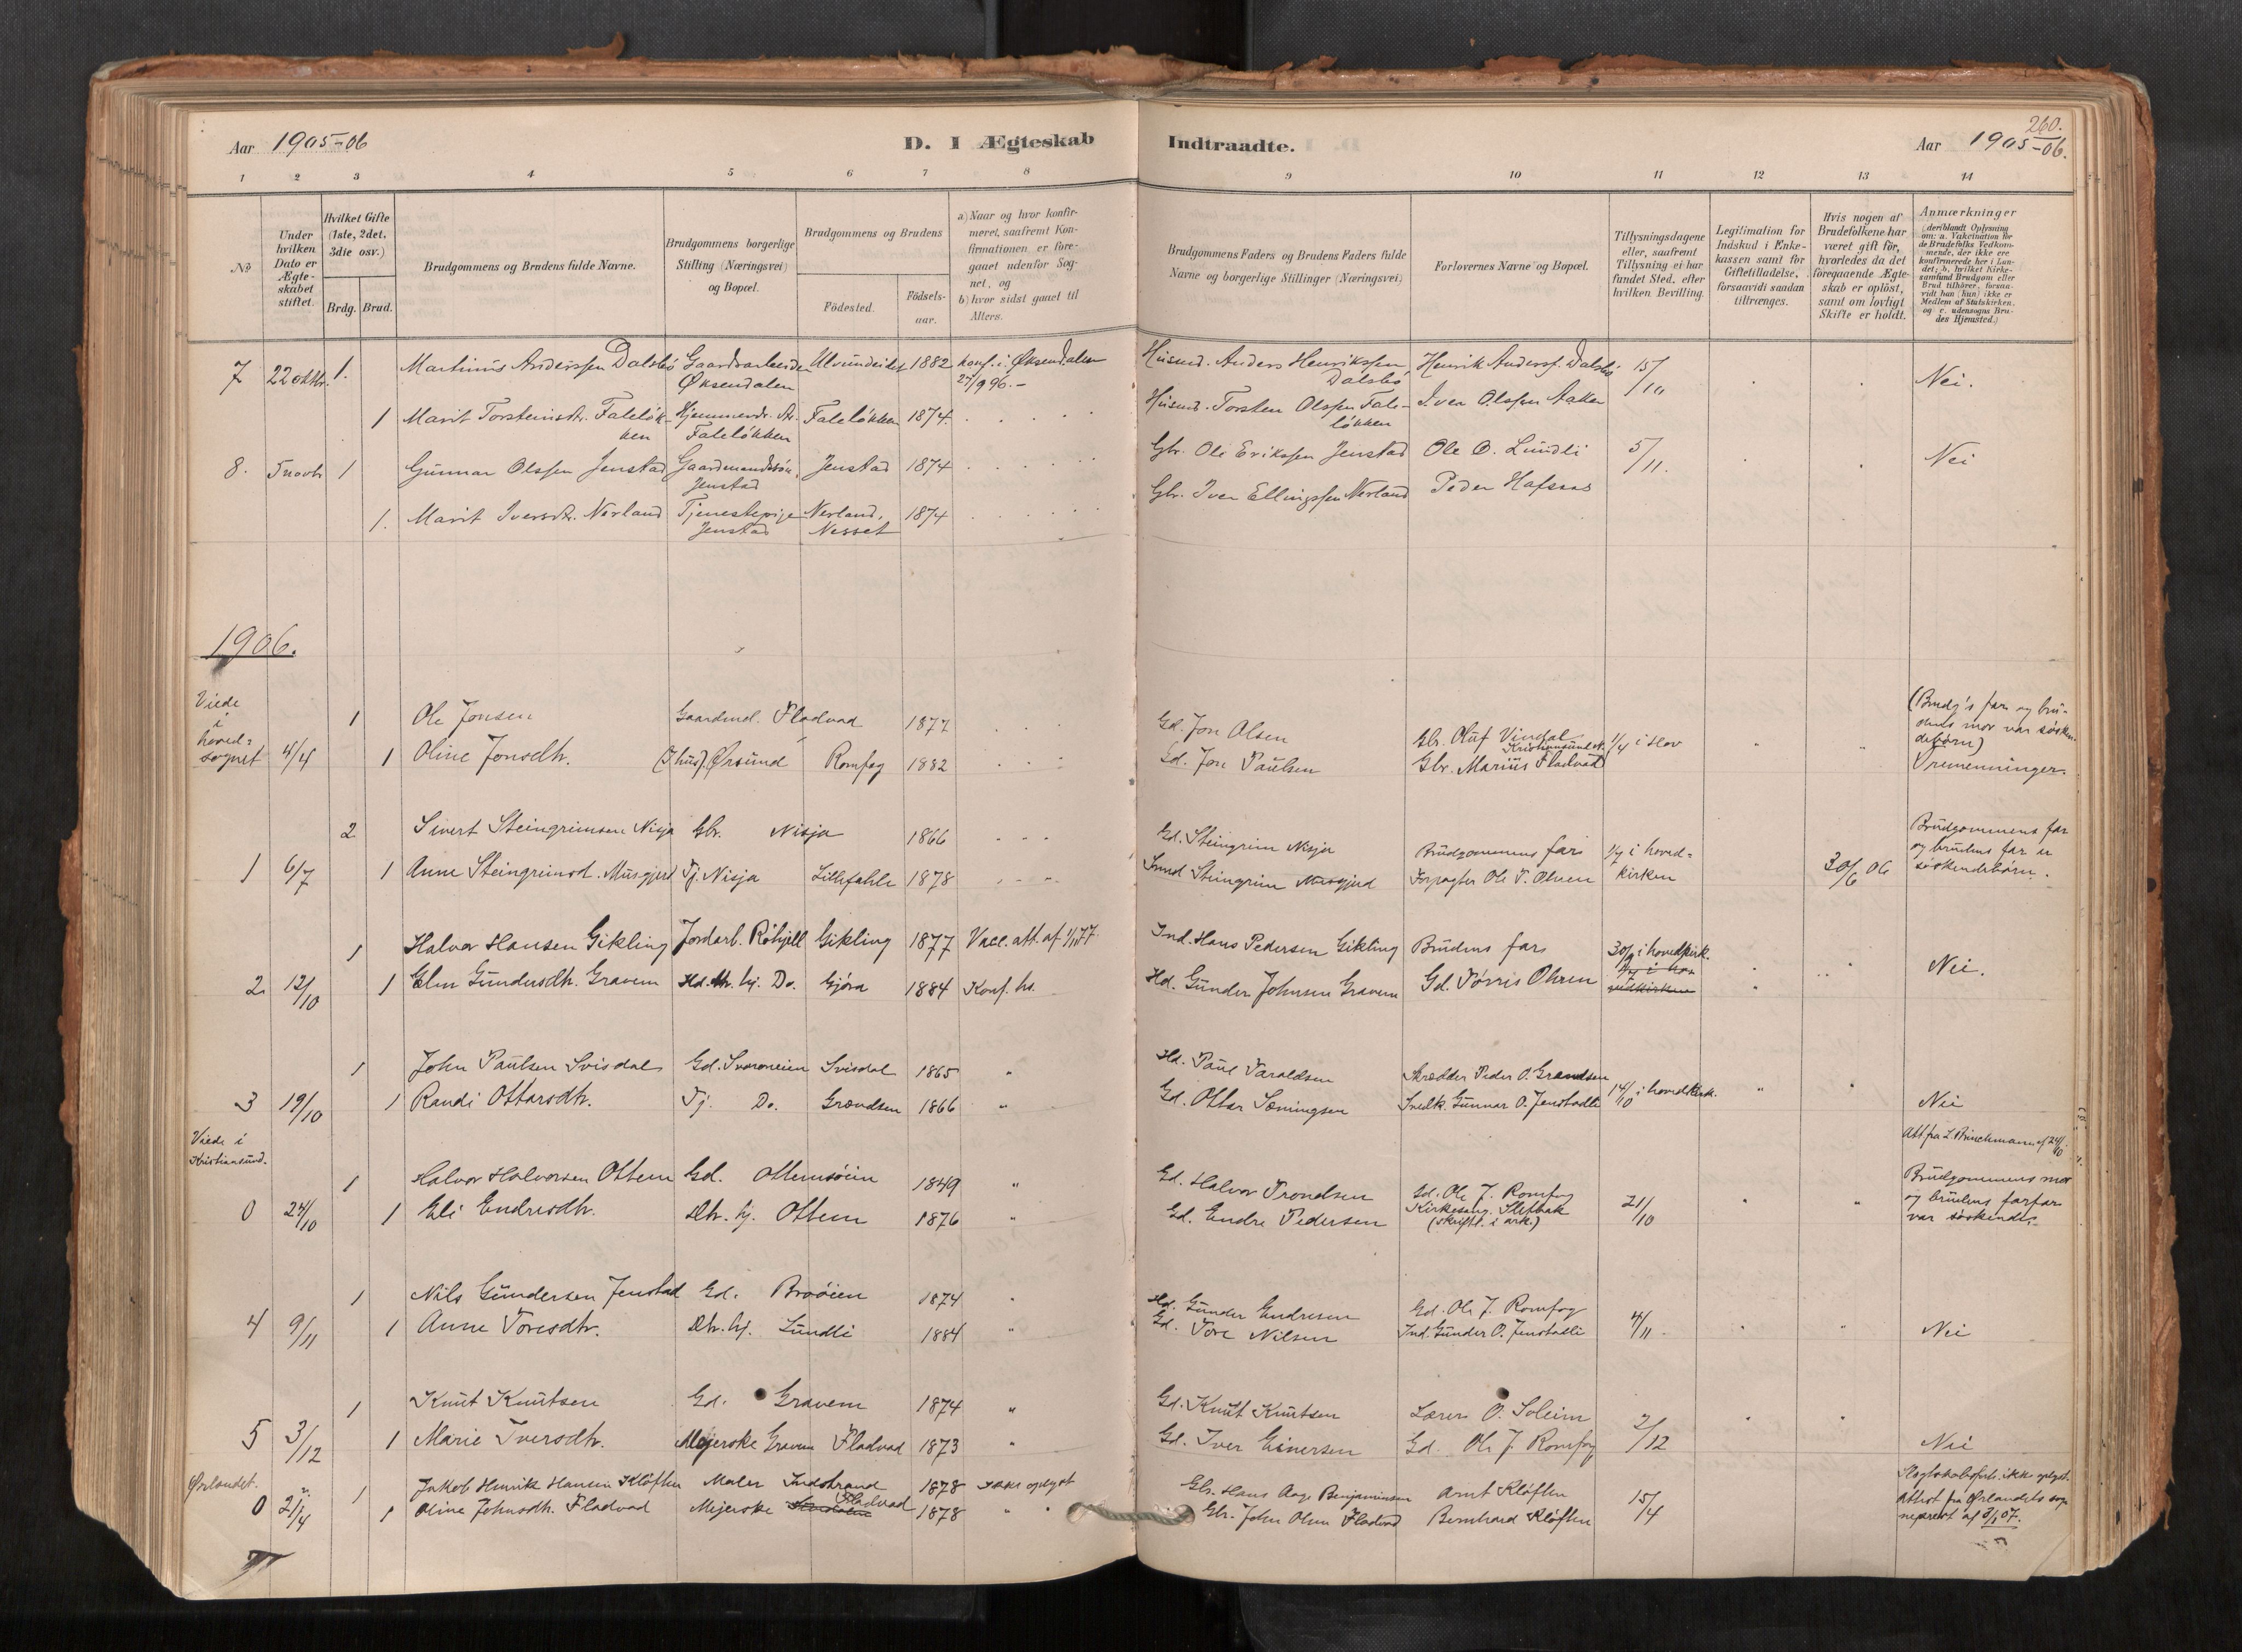 Aar 1905-06
D. I Ægteskab
Indtraadte.
260.
Aar 1905-06.
1 2 3 4 5 6 7 8 9 10 11 12 13 14
No
Under hvilken Dato er Ægteskabet stiftet.
Hvilket Gifte (1ste, 2det, 3die osv.)
Brdg. Brud.
Brudgommens og Brudens fulde Navne.
Brudgommens borgerlige Stilling (Næringsvei) og Bopæl.
Brudgommens og Brudens
Fødested.
Fødsels-aar.
a) Naar og hvor konfirmeret, saafremt Konfirmationen er foregaaet udenfor Sognet, og
b) hvor sidst gaaet til Alters.
Brudgommens Faders og Brudens Faders fulde Navne og borgerlige Stillinger (Næringsvei)
Forlovernes Navne og Bopæl.
Tillysningsdagene eller, saafremt Tillysning ei har fundet Sted, efter hvilken Bevilling.
Legitimation for Indskud i Enkekassen samt for Giftetilladelse, forsaavidt saadan tiltrænges.
Hvis nogen af Brudefolkene har været gift før, hvorledes da det foregaaende Ægteskab er opløst, samt om lovligt Skifte er holdt.
Anmærkninger (deriblandt Oplysning om: a. Vakcination for de Brudefolks Vedkommende, der ikke ere konfirmerede her i Landet; b. hvilket Kirkesamfund Brudgom eller Brud tilhører, forsaavidt han (hun) ikke er Medlem af Statskirken, og c. udensogns Brudes Hjemsted.)
7 22 oktbr. 1. Martinus Anderssen Dalsbø Gaardarbeider Øksendalen Ulvundeidet 1882 konf. i Øksendalen 27/9 96.- Husmd. Anders Henrikssen Dalsbø Henrik Anderss. Dalsbø 15/10 Nei.
1 Marit Torsteinsdtr. Faleløkken Hjemmev. dtr. Faleløkken Faleløkken 1874. Husmd. Torsten Olssen Faleløkken Iver Olssen Aaker
8. 5 novb. 1 Gunnar Olssen Jenstad Gaardmandssøn, Jenstad Jenstad 1874 Gbr. Ole Erikssen Jenstad Ole O. Lundli 5/11. Nei
1. Marit Iversdtr. Nerland Tjenestepige Jenstad Nerland, Nesset 1874 Gbr. Iver Ellingssen Nerland Peder Hafsaas
1906.
Viede i hovedsognet 4/4
1 Ole Jonsen Gaardmd. Fladvad 1877 Gd. Jon Olsen Gbr. Oluf Vindal Kristiansund N. 1/4 i Hov (Brudg's far og brudens mor var søskendebørn)
1 Oline Jonsdtr. (I hus). Ørsund Romfog 1882 Gd. Jon Paulsen Gbr. Marius Fladvad Tremenninger.
2 Sivert Steingrimsen Nisja Gbr. Nisja 1866 Gd. Steingrim Nisja Brudgommens far 1/7 i hovedkirken Brudgommens far og brudens far er søskendebørn.
1 6/7 1 Anne Steingrimsd. Musgjerd Tj. Nisja Lillefahle 1878 Smd Steingrim Musgjerd Forpagter Ole T. Ohren 30/6 06
1 Halvor Hansen Gikling Jordarb. Røhjell Gikling 1877 Vacc. att. af 1/1 77. Ind. Hans Pedersen Gikling Brudens far 30/9 i hovedkirk.
2 12/10 1 Elen Gundersdtr. Gravem Gjøra 1884 Konf. hs. Hd. Gunder Johnsen Gravem Gd. Tørris Ohren Nei.
1 John Paulsen Svisdal Gd. Svoroneien Svisdal 1865 " Hd. Paul Taraldsen Skrædder Peder O. Grændsen
3 19/10 1 Randi Ottarsdtr. Tj. Do. Grændsen 1866 " Gd. Ottar Sæmingsen Snedk. Gunnar O. Jenstadli 14/10 i hovedkirk. Nei
Viede i Kristiansund.
Att fra L. Brinchmann af 24/10
1 Halvor Halvorsen Ottem Gd. Ottemsøien 1849 " Gd. Halvor Trondsen Gd. Ole J. Romfog Brudgommens mor og brudens farfar var søskende.
0 24/10 1 Eli Endresdtr. Dtr. hj. Ottem 1876 " Gd. Endre Pedersen Kirkesang. Sletbak (Skriftl. i ark.) 21/10
1 Nils Gundersen Jenstad Gd. Brøøien 1874 " Hd. Gunder Endresen Gd. Ole J. Romfog
4 9/11 1 Anne Toresdtr. Dtr. hj. Lundli 1884 " Gd. Tore Nilsen Ind. Gunder O. Jenstadli 4/11 Nei
1 Knut Knutsen Gd. Gravem 1874 " Gd. Knut Knutsen Lærer O. Soleim
5 3/12 1 Marie Iversdtr. Mejerske Gravem Fladvad 1873 " Gd. Iver Einersen Gd. Ole J. Romfog 2/12 Nei
Ørlandet.
1 Jakob Henrik Hansen Kløften Maler Indstrand 1878 ikke oplyst Gbr. Hans Aage Benjaminsen Arnt Kløften Slegtskabsforh. ikke oplyst.
0 21/4 1 Oline Johnsdtr. Fladvad Mejerske Fladvad 1878 " " Gbr. John Olsen Fladvad Bernhard Kløften 15/4 Attest fra Ørlandets sogneprest af 8/1 07.